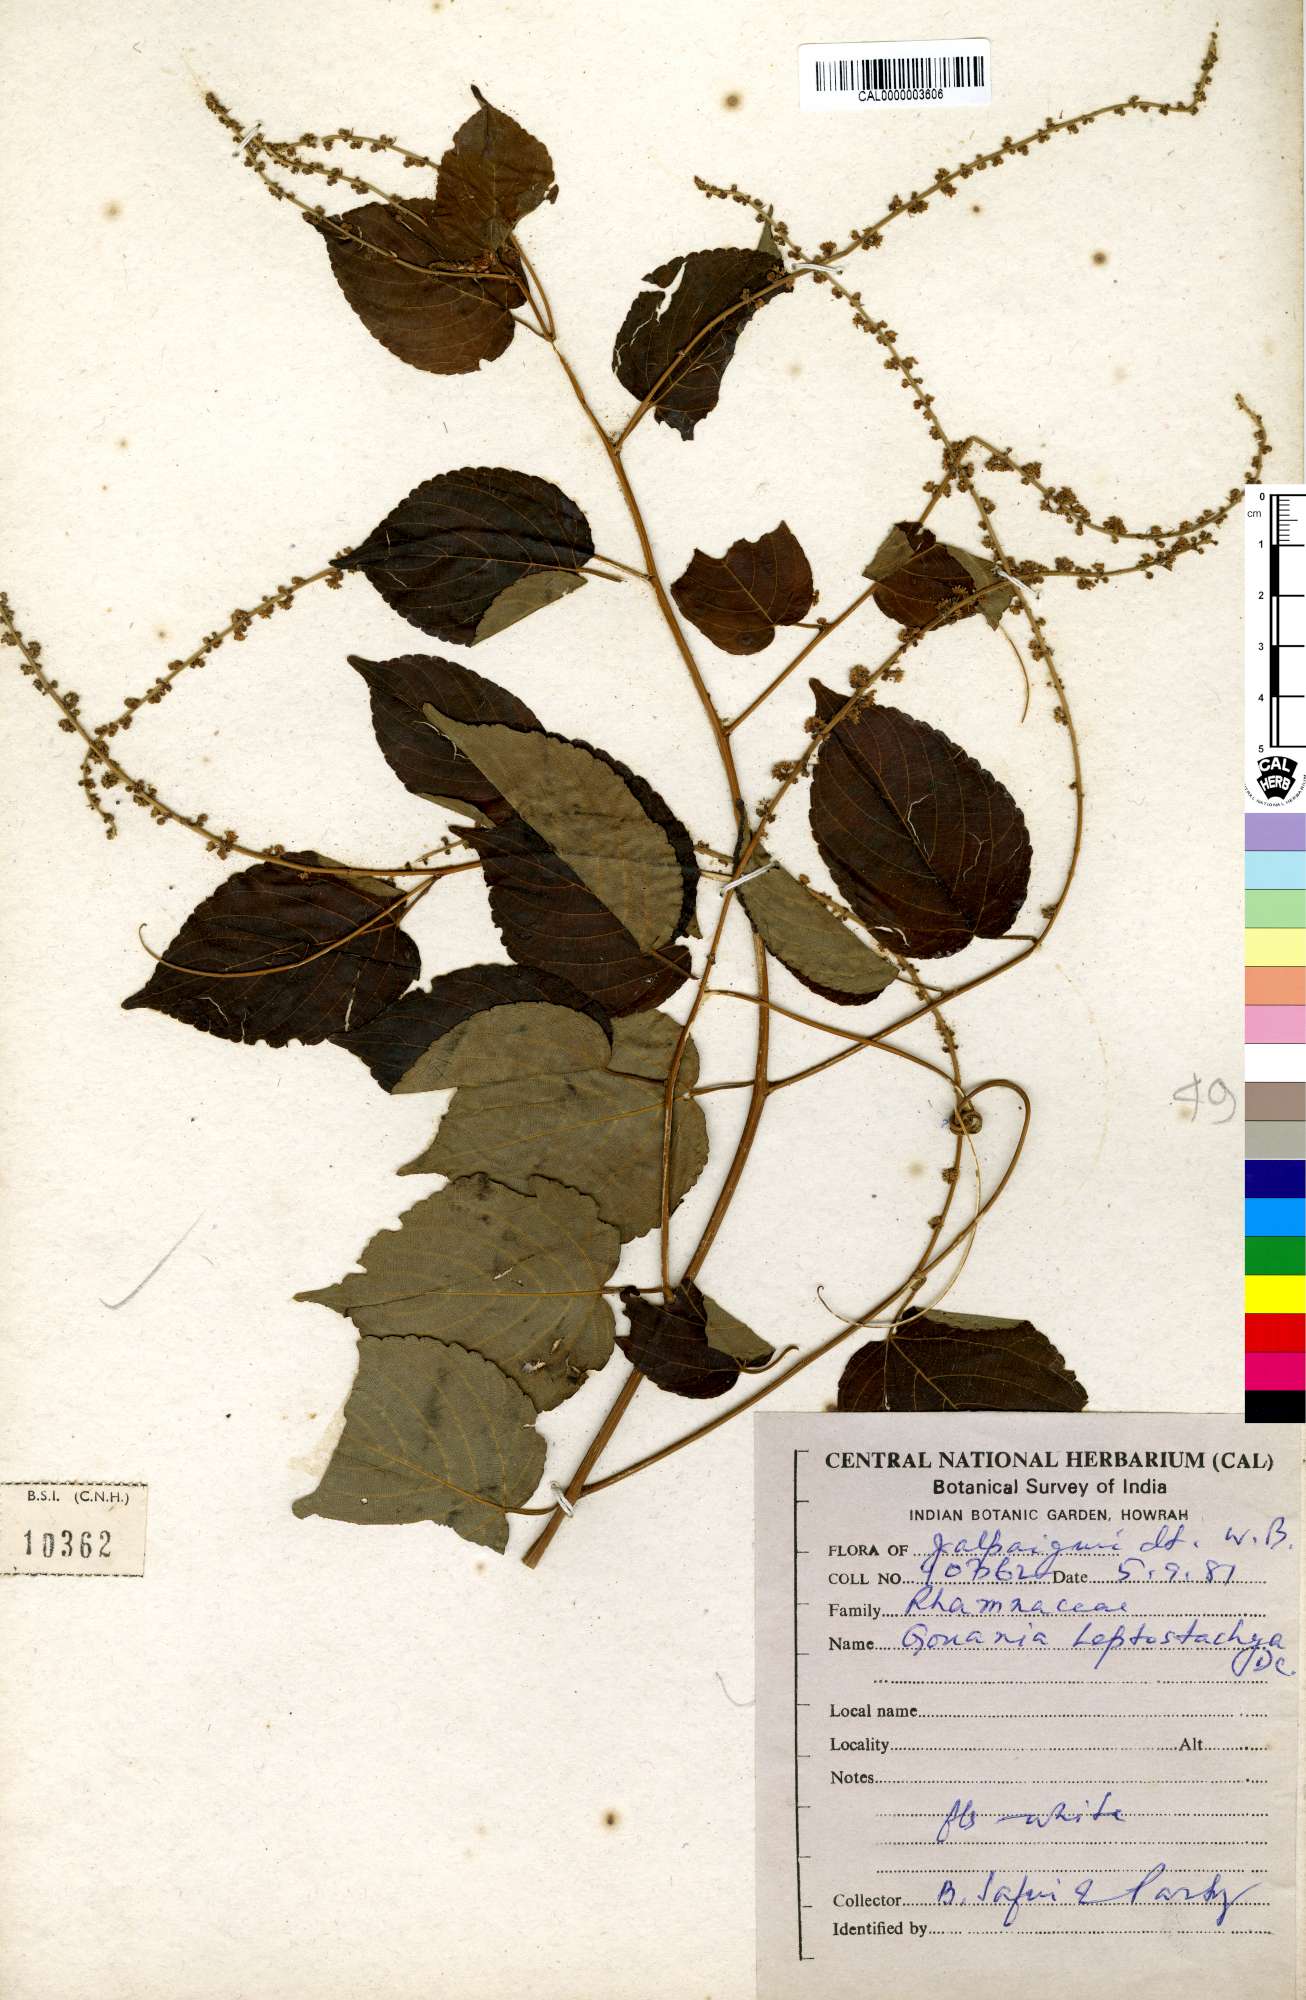 CAL0000003606
0
cm
1
2
3
4
5
CAL
HERB
CENTRAL NATIONAL HERBARIUM
49
B.S.I. (C.N.H.)
10362
CENTRAL NATIONAL HERBARIUM (CAL)
Botanical Survey of India
INDIAN BOTANIC GARDEN, HOWRAH
FLORA OF Jalpaiguri dt. W.B.
COLL NO. Date 5.9.81
Family Rhamnaceae
Name Gouania leptostachya
DC.
Local name
Locality Alt
Notes
fls white
Collector B. Safui & Party
Identified by